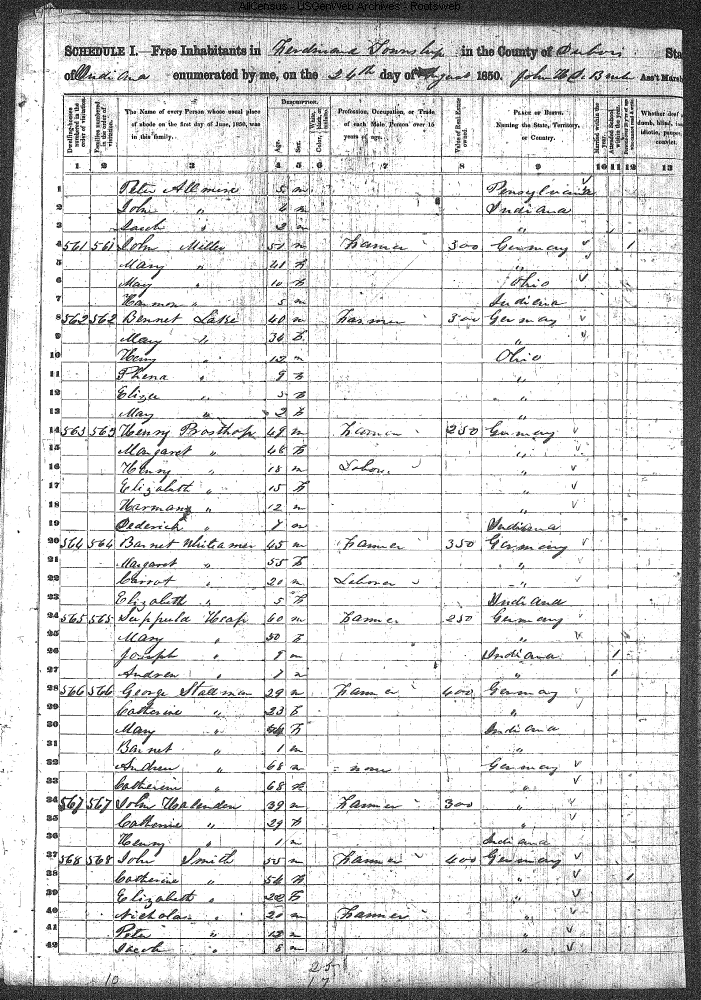 AllCensus - USGenWeb Archives - Rootsweb
SCHEDULE I.—Free Inhabitants in Ferdinand Township in the County of Dubois Sta
of Indiana enumerated by me, on the 24th day of August 1850. John Ass't Marsh
Dwelling-houses numbered in the order of visitation.
Families numbered in the order of visitation.
The Name of every Person whose usual place of abode on the first day of June, 1850, was in this family.
DESCRIPTION.
Age.
Sex.
White, Color, black, or mulatto.
Profession, Occupation, or Trade of each Male Person over 15 years of age.
Value of Real Estate owned.
PLACE OF BIRTH. Naming the State, Territory, or Country.
Married within the year.
Attended School within the year.
Whether deaf dumb, blind, idiotic, pauper, convict.
1 2 3 4 5 6 7 8 9 10 11 12 13
1 Peter 5 m Pensylvania
2 John " 4 m Indiana
3 Jacob " 2 m "
4 561 561 John Miller 51 m Farmer 300 Germany 1
5 Mary " 41 F "
6 Mary " 10 F Ohio
7 Harmon " 5 m Indiana
8 562 562 Bennet Lake 40 m Farmer 300 Germany
9 Mary " 36 F "
10 Henry " 12 m Ohio
11 Phena " 9 F "
12 Eliza " 5 F "
13 Mary " 2 F "
14 563 563 Henry 49 m Farmer 250 Germany
15 Margaret " 46 F "
16 Henry " 18 m "
17 Elizabeth " 15 F "
18 Harman " 12 m "
19 Dederick " 8 m Indiana
20 564 564 Barnet 45 m Farmer 350 Germany
21 Margaret " 55 F "
22 " 20 m Laborer "
23 Elizabeth " 5 F Indiana
24 565 565 Heap 60 m Farmer 250 Germany
25 Mary " 50 F "
26 Joseph " 9 m Indiana 1
27 Andrew " 7 m " 1
28 566 566 George Stallman 29 m Farmer 400 Germany
29 Catherine " 23 F "
30 Mary " F Indiana
31 Barnet " 1 m "
32 Andrew " 68 m none Germany
33 Catherine " 68 F "
34 567 567 John 39 m Farmer 300 "
35 Catherine " 29 F "
36 Henry " 1 m Indiana
37 568 568 John Smith 55 m Farmer 400 Germany
38 Catherine " 54 F " 1
39 Elizabeth " 22 F "
40 Nicholas " 20 m Farmer "
41 Peter " 12 m "
42 Jacob " 8 m "
10
25
17